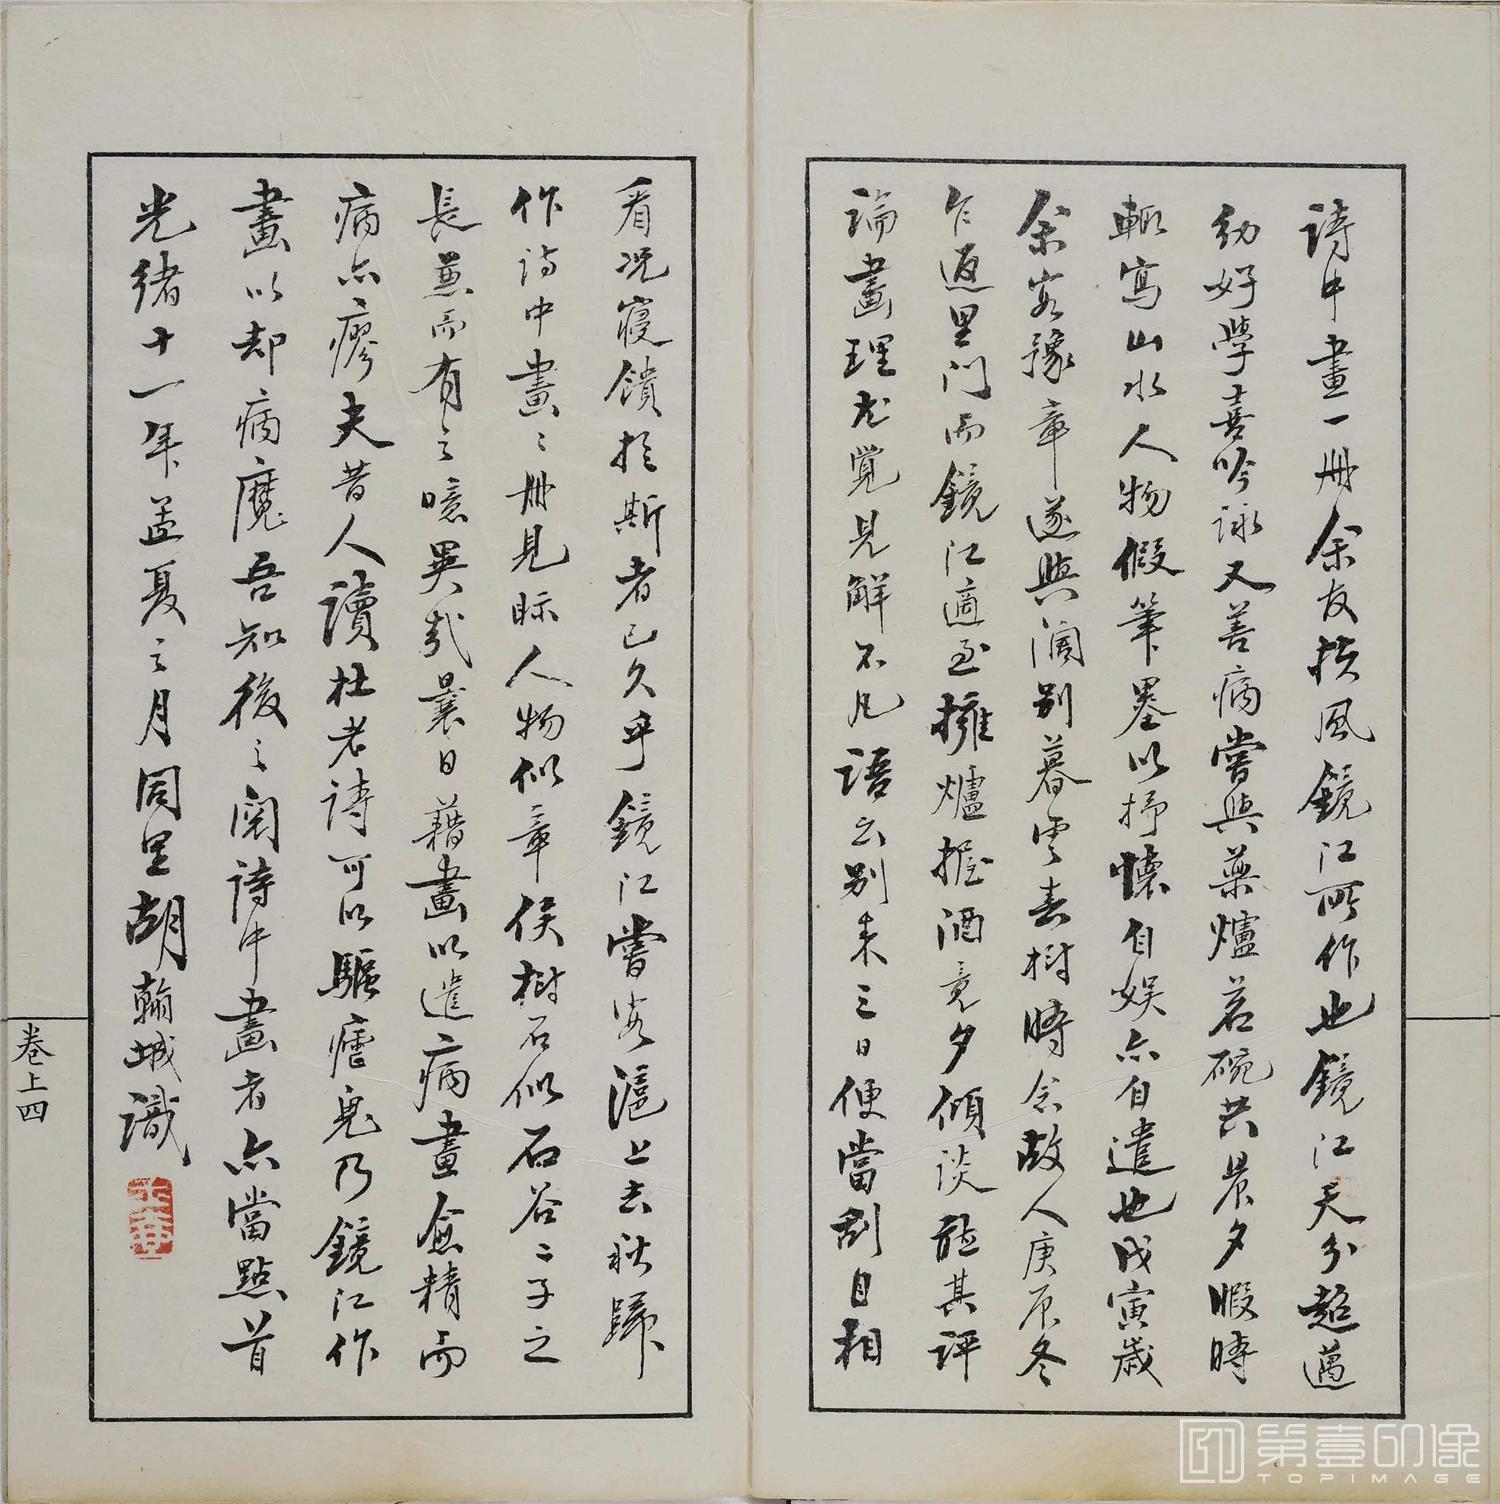 詩中畫一冊余友扶風鏡江所作也鏡江天分超邁
幼好學喜吟詠又善病嘗與藥爐茗碗共晨夕暇時
輒寫山水人物假筆墨以抒懷自娛亦自遣也戊寅歲
余客豫章遂與濶別暮雲春樹時念故人庚辰冬
乍返里門而鏡江適至擁爐握酒竟夕傾談聽其評
論畫理尤覺見解不凡語云別来三日便當刮目相
看况寢饋於斯者已久乎鏡江嘗客滬上去秋歸
作詩中畫〻冊見眎人物似章侯樹石似石谷二子之
長兼而有之噫異哉曩日藉畫以遣病畫愈精而
病亦瘳夫昔人讀杜老詩可以驅瘧鬼乃鏡江作
畫以却病魔吾知後之閱詩中畫者亦當點首
光緒十一年孟夏之月同里胡瀚城識
卷上四
第壹印像
TOPIMAGE